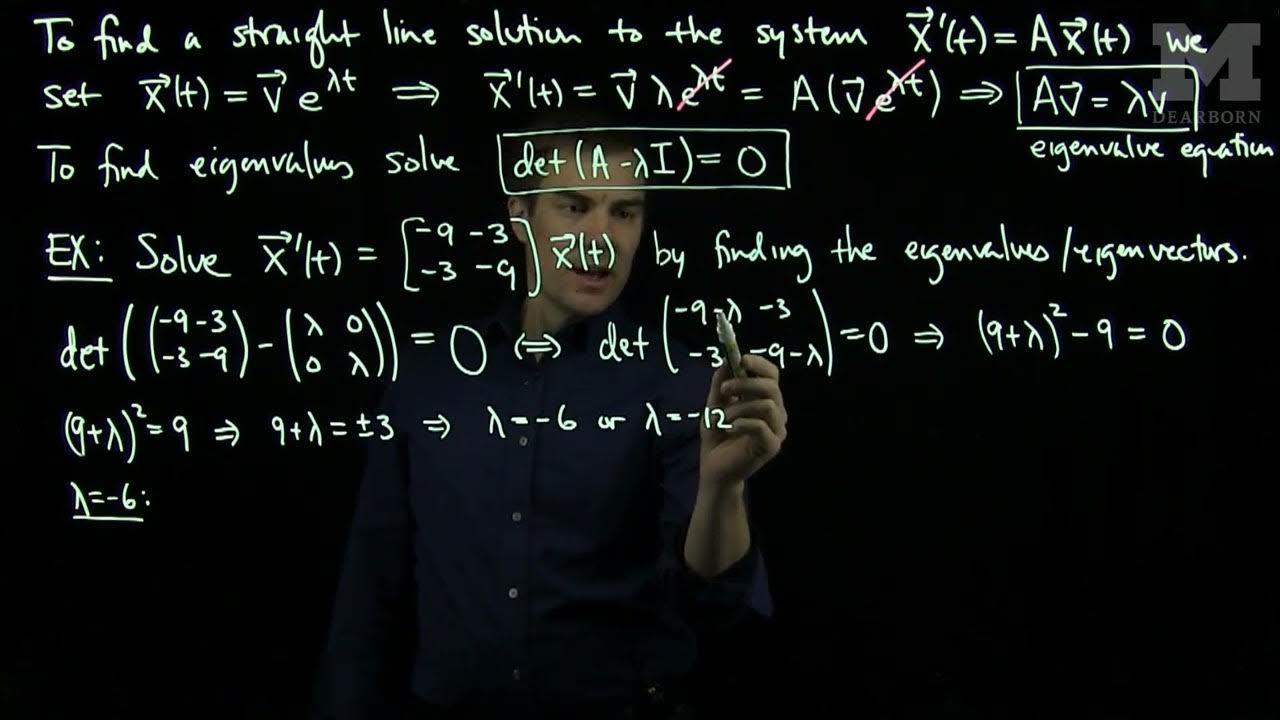 To find a straight line solution to the system x⃗'(t) = A x⃗(t) we
set x⃗(t) = v⃗ e^{λt} ⟹ x⃗'(t) = v⃗ λ e^{λt} = A (v⃗ e^{λt}) ⟹ Av⃗ = λv
eigenvalue equation
To find eigenvalues solve det (A - λI) = 0
EX: Solve x⃗'(t) = [-9 -3; -3 -9] x⃗(t) by finding the eigenvalues/eigenvectors.
det ((-9 -3; -3 -9) - (λ 0; 0 λ)) = 0 ⟺ det (-9-λ -3; -3 -9-λ) = 0 ⇒ (9+λ)² - 9 = 0
(9+λ)² = 9 ⇒ 9+λ = ±3 ⇒ λ = -6 or λ = -12
λ = -6:
M
DEARBORN